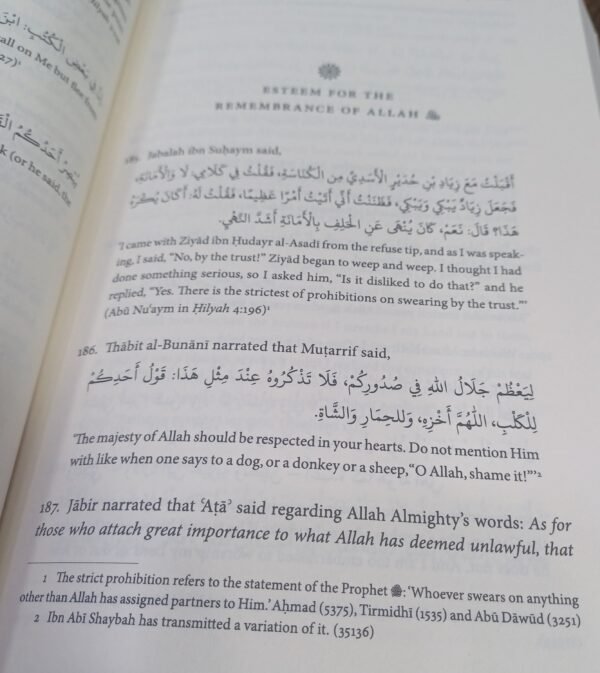 فِي بَعْضِ الْكُتُبِ: ابْنَ
all on Me but flee from
27)'
أَحَدُكُمُ
k (or he said, the
ESTEEM FOR THE
REMEMBRANCE OF ALLAH ﷻ
185. Jabalah ibn Suḥaym said,
أَقْبَلْتُ مَعَ زِيَادِ بْنِ حُدَيْرٍ الْأَسَدِيِّ مِنَ الْكُنَاسَةِ، فَقُلْتُ فِي كَلَامِي: لَا وَالْأَمَانَةِ،
فَجَعَلَ زِيَادٌ يَبْكِي وَيَبْكِي، فَظَنَنْتُ أَنِّي أَتَيْتُ أَمْرًا عَظِيمًا، فَقُلْتُ لَهُ: أَكَانَ يُكْرَهُ
هَذَا؟ قَالَ: نَعَمْ، كَانَ يُنْهَى عَنِ الْحَلِفِ بِالْأَمَانَةِ أَشَدَّ النَّهْيِ.
'I came with Ziyād ibn Ḥudayr al-Asadī from the refuse tip, and as I was speak-
ing, I said, "No, by the trust!" Ziyād began to weep and weep. I thought I had
done something serious, so I asked him, "Is it disliked to do that?" and he
replied, "Yes. There is the strictest of prohibitions on swearing by the trust."'
(Abū Nuʿaym in Ḥilyah 4:196)¹
186. Thābit al-Bunānī narrated that Muṭarrif said,
لِيَعْظُمْ جَلَالُ اللهِ فِي صُدُورِكُمْ، فَلَا تَذْكُرُوهُ عِنْدَ مِثْلِ هَذَا: قَوْلُ أَحَدِكُمْ
لِلْكَلْبِ، اللّٰهُمَّ أَخْزِهِ، وَلِلْحِمَارِ وَالشَّاةِ.
'The majesty of Allah should be respected in your hearts. Do not mention Him
with like when one says to a dog, or a donkey or a sheep, "O Allah, shame it!"'²
187. Jābir narrated that ʿAṭāʾ said regarding Allah Almighty's words: As for
those who attach great importance to what Allah has deemed unlawful, that
1 The strict prohibition refers to the statement of the Prophet ﷺ: 'Whoever swears on anything
other than Allah has assigned partners to Him.' Aḥmad (5375), Tirmidhī (1535) and Abū Dāwūd (3251)
2 Ibn Abī Shaybah has transmitted a variation of it. (35136)